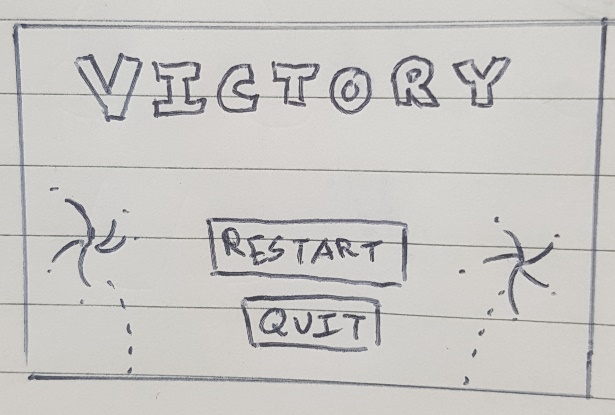 VICTORY
RESTART
QUIT